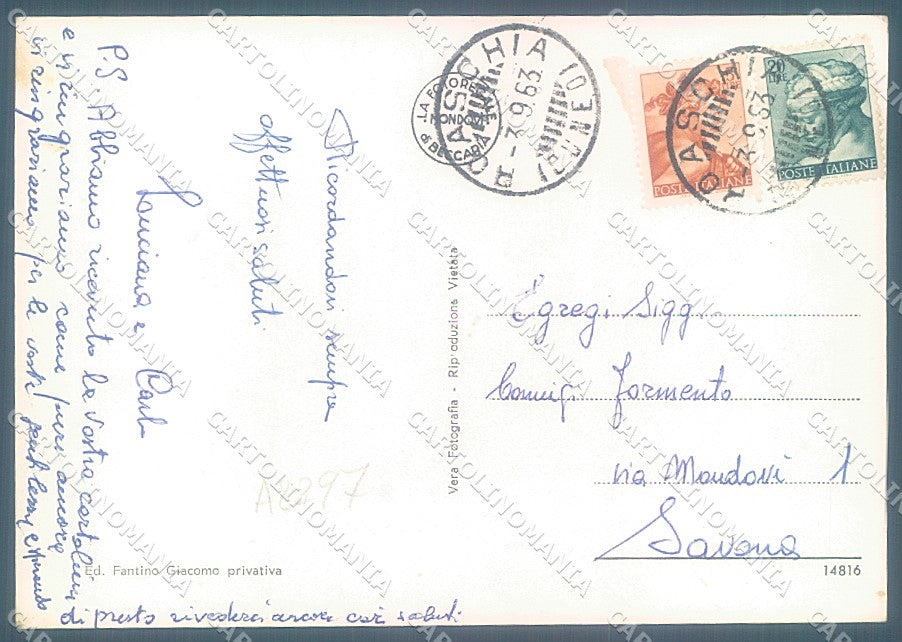 Ricordandovi sempre
affettuosi saluti
Luciana e Carlo
P.S. Abbiamo ricevuto la vostra cartolina
e vi ringraziamo come pure ancora
vi ringraziamo per le vostre
di presto rivederci ancora cari saluti
Ed. Fantino Giacomo privativa
Vera Fotografia - Riproduzione Vietata
LA FOTO
MONDOVI
di BECCARIA
ROASCHIA (CUNEO)
-3.9.63
POSTE ITALIANE
ROASCHIA (CUNEO)
-3.9.63
20 LIRE
POSTE ITALIANE
Egregi Sigg
Coniugi Formento
via Mondovi 1
Savona
14816
A6297
CARTOLINOMANIA